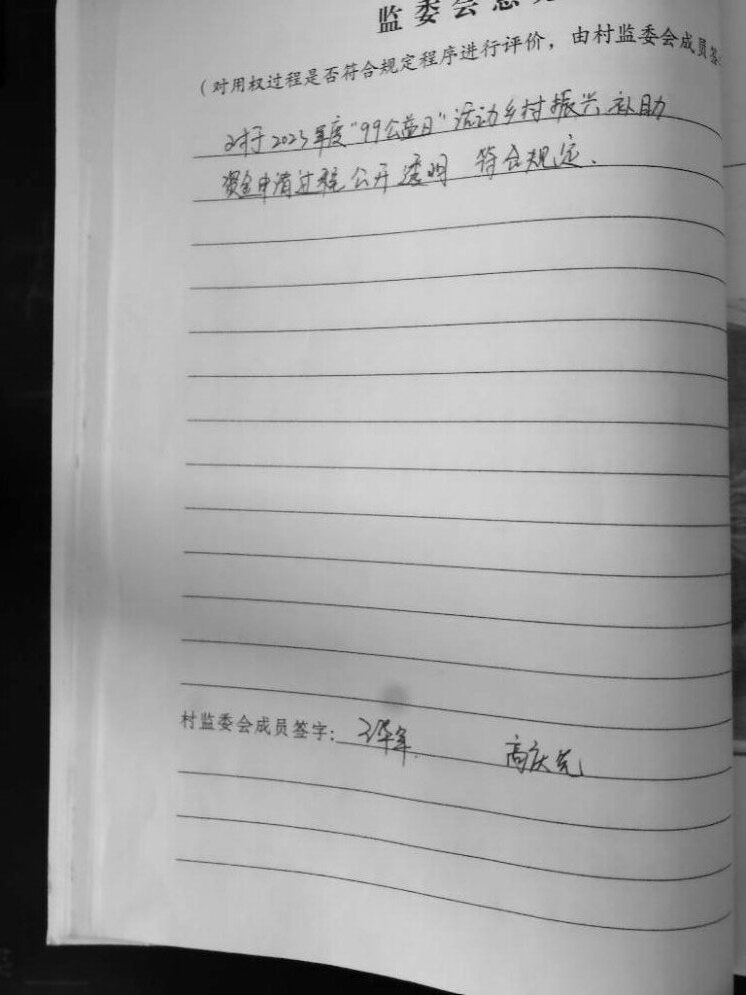 监委会意见
（对用权过程是否符合规定程序进行评价，由村监委会成员签
对于2023年度"99公益日"活动乡村振兴补助
资金申请过程公开透明 符合规定.
村监委会成员签字：